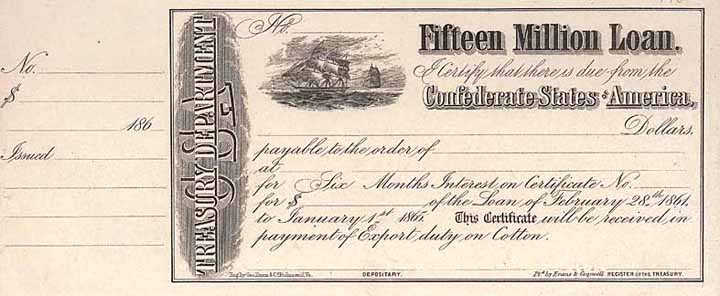 No.
$
186
Issued
TREASURY DEPARTMENT
No.
Fifteen Million Loan.
I Certify that there is due from the
Confederate States of America,
Dollars.
payable to the order of
at
for Six Months Interest on Certificate No.
for $ of the Loan of February 28.th 1861.
to January 1.st 1865. This Certificate will be received in
payment of Export duty on Cotton.
DEPOSITARY.
Pt.d by Evans & Cogswell
REGISTER OF THE TREASURY.